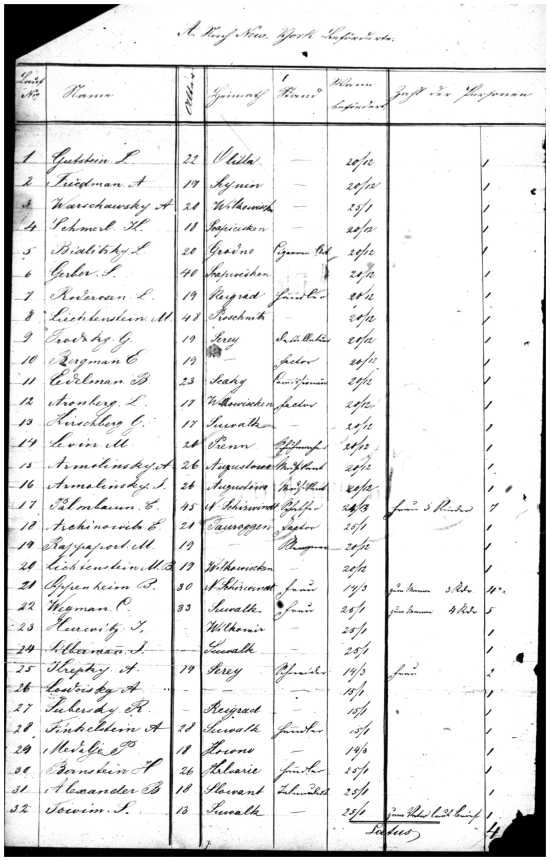 A. Nach New-York Beförderte.
Lauf No. Name Alter Heimath Stand Wann befördert Zahl der Personen
1 Gutstein L 22 Olitta — 20/12 1
2 Friedman A 19 — 20/12 1
3 Warschawsky A 20 Wilkowisk — 25/1 1
4 Schmerl H. 18 — 20/12 1
5 Bialitzky L 20 Grodno 20/12 1
6 Gerber S. 40 — 20/12 1
7 Roderosen L. 19 Reigrad Händler 20/12 1
8 Liechtenstein M. 48 Proschnitz — 20/12 1
9 Trodskg. G. 19 Serey 20/12 1
10 Bergman E 19 — factor 20/12 1
11 Eidelman B. 23 20/12 1
12 Aronberg L. 17 Wilkowiscken factor 20/12 1
13 Hirschberg G. 17 Suwalk — 20/12 1
14 Levin M 20 Prenn 20/12 1
15 Armolinsky A 26 Augustowo Musikant 20/12 1
16 Armolinsky. S. 26 Augustowo Musikant 20/12 1
17 Palmbaum. E. 45 N Schirwindt frau 5 Kinder 7
18 Archinowitz E 21 Tauroggen factor 25/1 1
19 Rappaport M. 19 Klempner 20/12 1
20 Lichtenstein M. B. 19 Wilkowiscken 20/12 1
21 Oppenheim B. 30 N Schirwindt frau 14/3 zum Manne 3 Kdr. 4
22 Wigman C. 33 Suwalk frau 25/1 zum Manne 4 Kdr 5
23 Hurwitz J. Wilkomir 25/1 1
24 Silberman. S. Suwalk 25/1 1
25 Kreptzy. A 19 Serey Schneider 14/3 frau 2
26 A — — — 15/1 1
27 Subersky R — Reigrad — 15/1 1
28 Finkelstein A 28 Suwalk Händler 15/1 1
29 P 18 Kowno — 14/3 1
30 Bernstein H 26 Kalvarie Händler 25/1 1
31 Alexander B 18 Slowant 25/1 1
32 Towim. S. 13 Suwalk 25/1 zum Vater laut 1
Latus 4